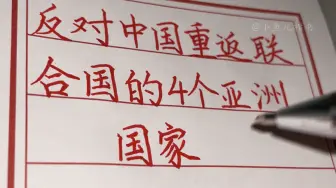 反对中国重返联
合国的4个亚洲
国家